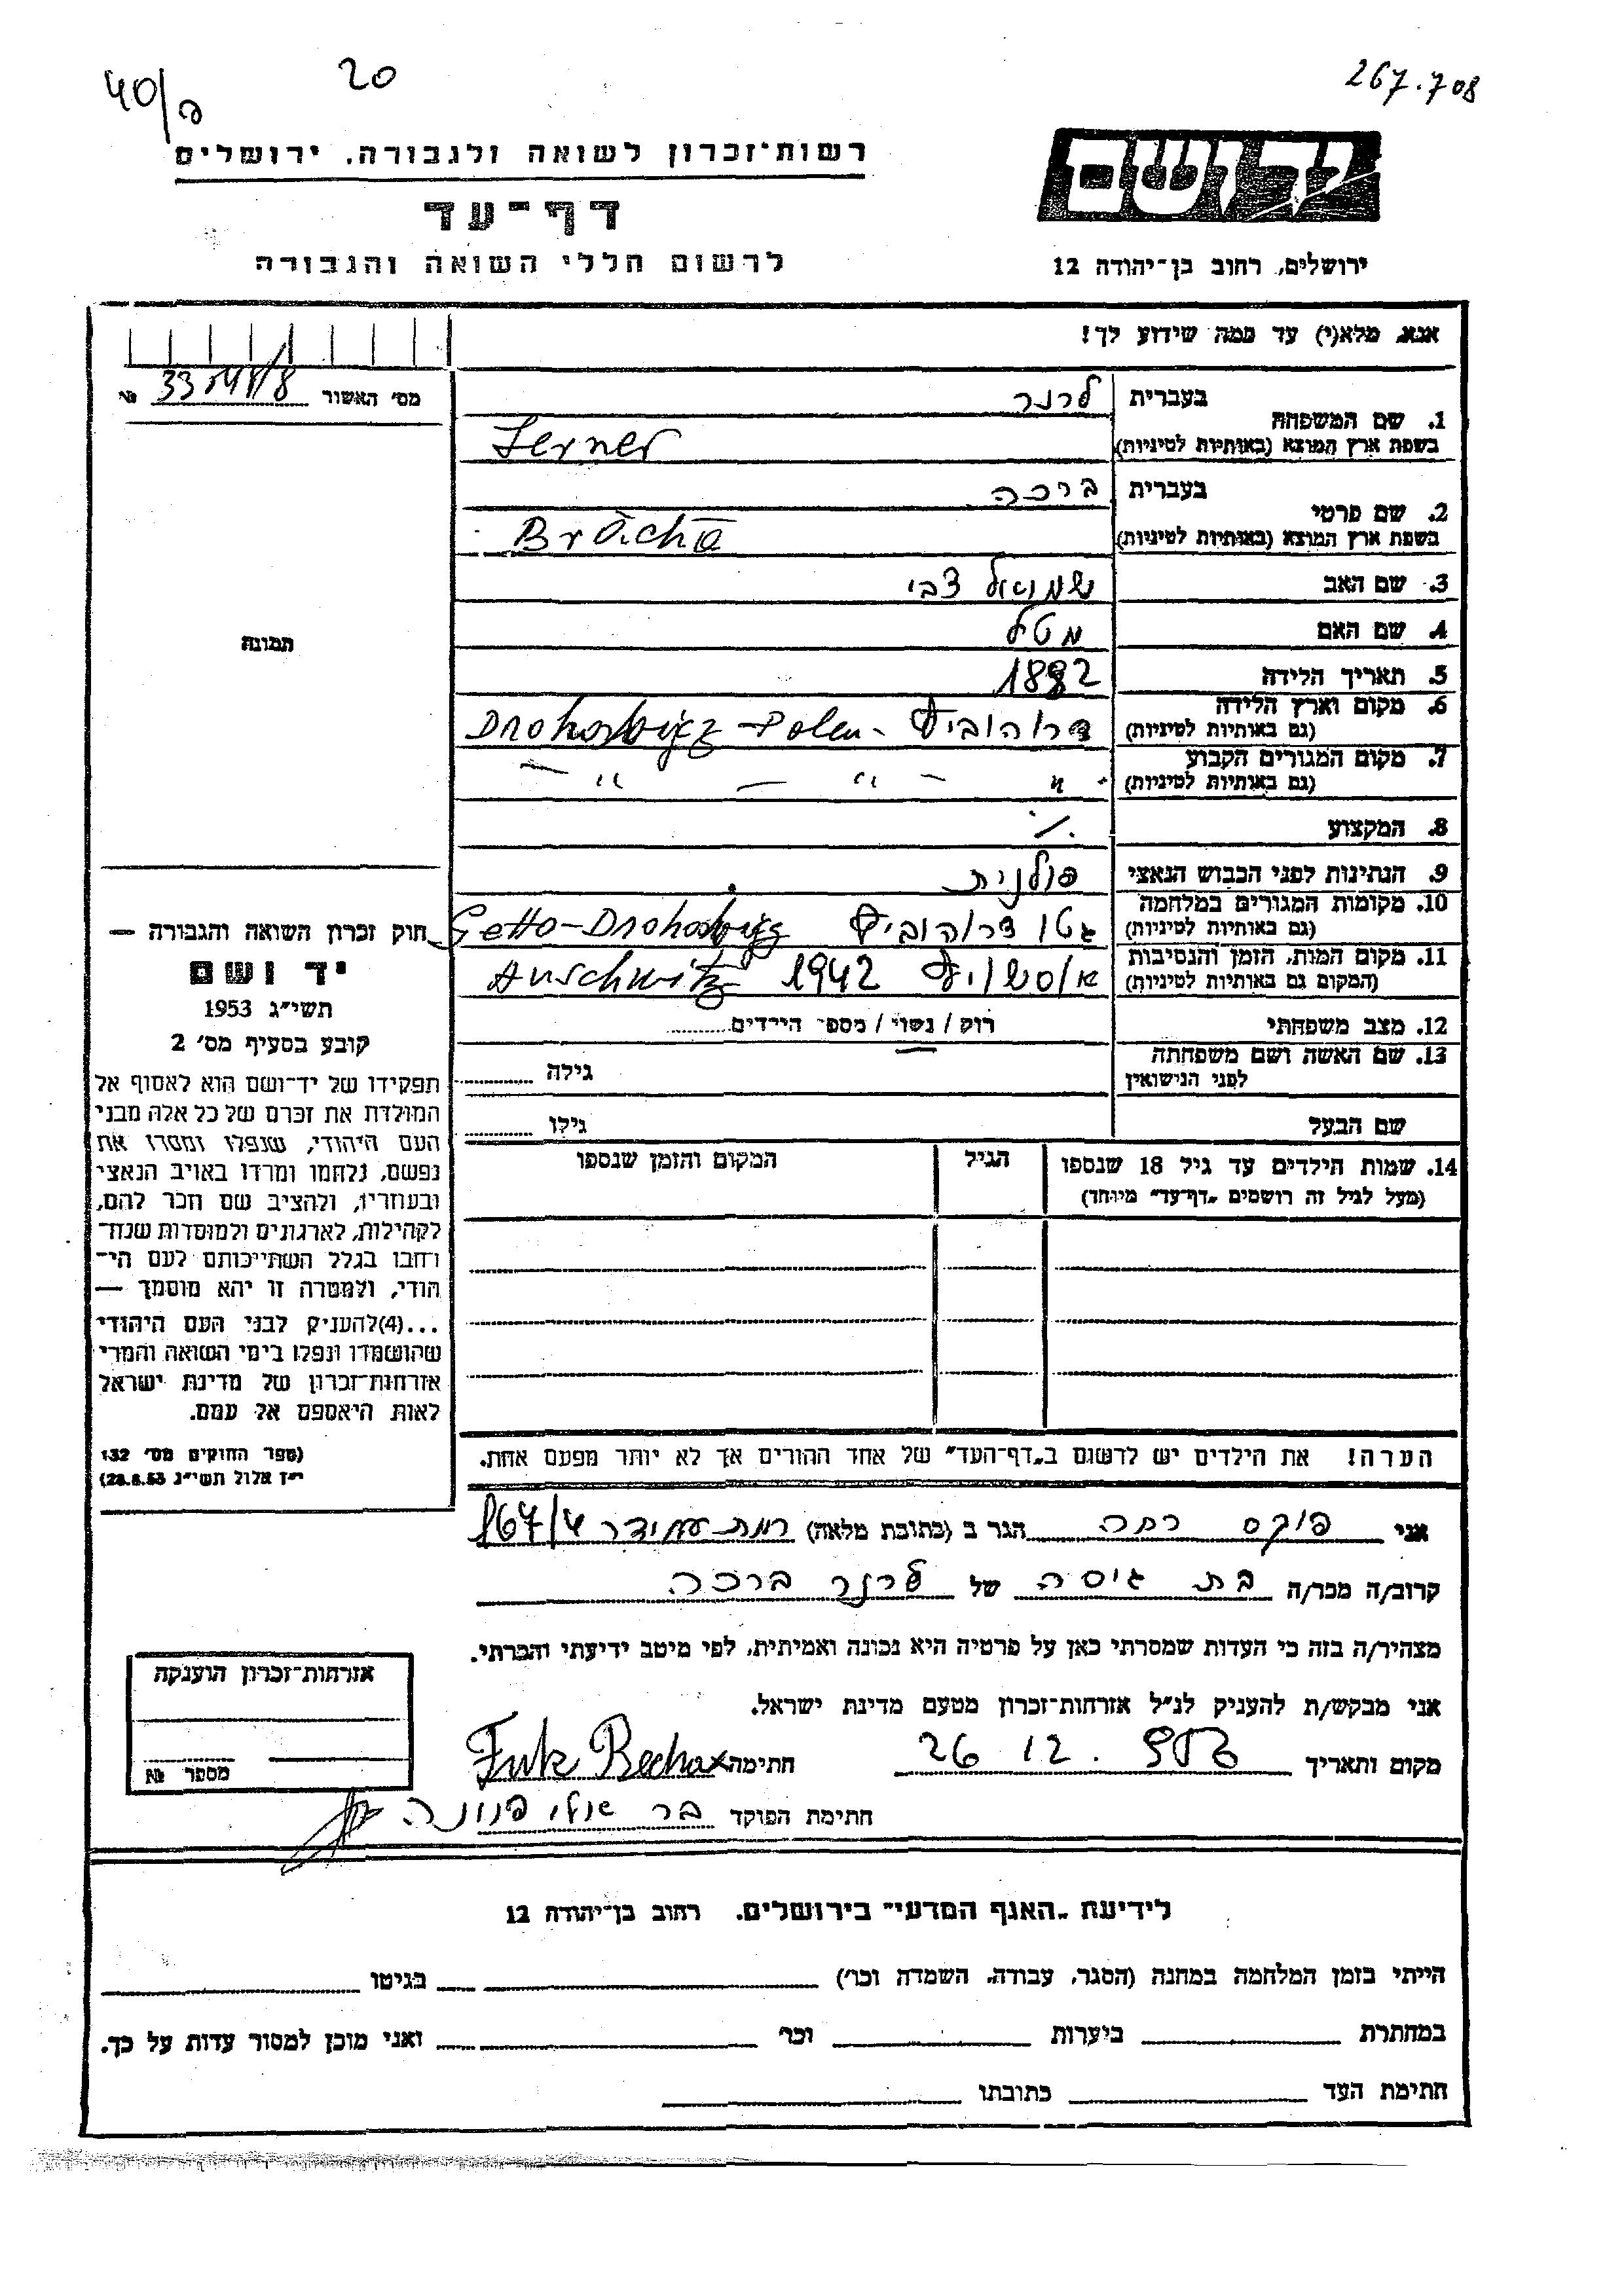 267.708
20
40/ק
רשות־זכרון לשואה ולגבורה, ירושלים
ידושם
דף־עד
ירושלים, רחוב בן־יהודה 12
לרשום חללי השואה והגבורה
אנא, מלא(י) עד כמה שידוע לך!
מס׳ האשור № 
1. שם המשפחה
בעברית לרנר
בשפת ארץ המוצא (באותיות לטיניות) Lerner
2. שם פרטי
בעברית ברכה
בשפת ארץ המוצא (באותיות לטיניות) Bracha
3. שם האב שמואל צבי
4. שם האם מטל
5. תאריך הלידה 1882
6. מקום וארץ הלידה
(גם באותיות לטיניות) דרוהוביץ - Drohobijcz - Polen
7. מקום המגורים הקבוע
(גם באותיות לטיניות) - " - " - " -
8. המקצוע ./.
9. הנתינות לפני הכבוש הנאצי פולנית
10. מקומות המגורים במלחמה
(גם באותיות לטיניות) גטו דרוהוביץ Getto-Drohobijcz
11. מקום המות, הזמן והנסיבות
(המקום גם באותיות לטיניות) אוסשויץ 1942 Auschwitz
12. מצב משפחתי רוק / נשוי / מספר הילדים
13. שם האשה ושם משפחתה
לפני הנישואין גילה
שם הבעל גילו
14. שמות הילדים עד גיל 18 שנספו
(מעל לגיל זה רושמים „דף־עד" מיוחד)
הגיל
המקום והזמן שנספו
הערה! את הילדים יש לרשום ב„דף־העד" של אחד ההורים אך לא יותר מפעם אחת.
תמונה
חוק זכרון השואה והגבורה —
יד ושם
תשי״ג 1953
קובע בסעיף מס׳ 2
תפקידו של יד־ושם הוא לאסוף אל
המולדת את זכרם של כל אלה מבני
העם היהודי, שנפלו ומסרו את
נפשם, נלחמו ומרדו באויב הנאצי
ובעוזריו, ולהציב שם וזכר להם,
לקהילות, לארגונים ולמוסדות שנח־
רחבו בגלל השתייכותם לעם הי־
הודי, ולמטרה זו יהא מוסמך —
...(4)להעניק לבני העם היהודי
שהושמדו ונפלו בימי השואה והמרי
אזרחות־זכרון של מדינת ישראל
לאות היאספם אל עמם.
(ספר החוקים מס׳ 132
י״ז אלול תשי״ג 28.8.53)
אני פוקס רחה הגר ב (כתובת מלאה) רמת עמידר 167/4
קרוב/ה מכר/ה בת גיסה של לרנר ברכה
מצהיר/ה בזה כי העדות שמסרתי כאן על פרטיה היא נכונה ואמיתית, לפי מיטב ידיעתי והכרתי.
אני מבקש/ת להעניק לנ״ל אזרחות־זכרון מטעם מדינת ישראל.
מקום ותאריך 26 12. חתימה
חתימת הפוקד
אזרחות־זכרון הוענקה
מספר №
לידיעת „האגף המדעי" בירושלים, רחוב בן־יהודה 12
הייתי בזמן המלחמה במחנה (הסגר, עבודה, השמדה וכר׳) בגיטו
במחתרת ביערות וכר׳ ואני מוכן למסור עדות על כך.
חתימת העד כתובתו